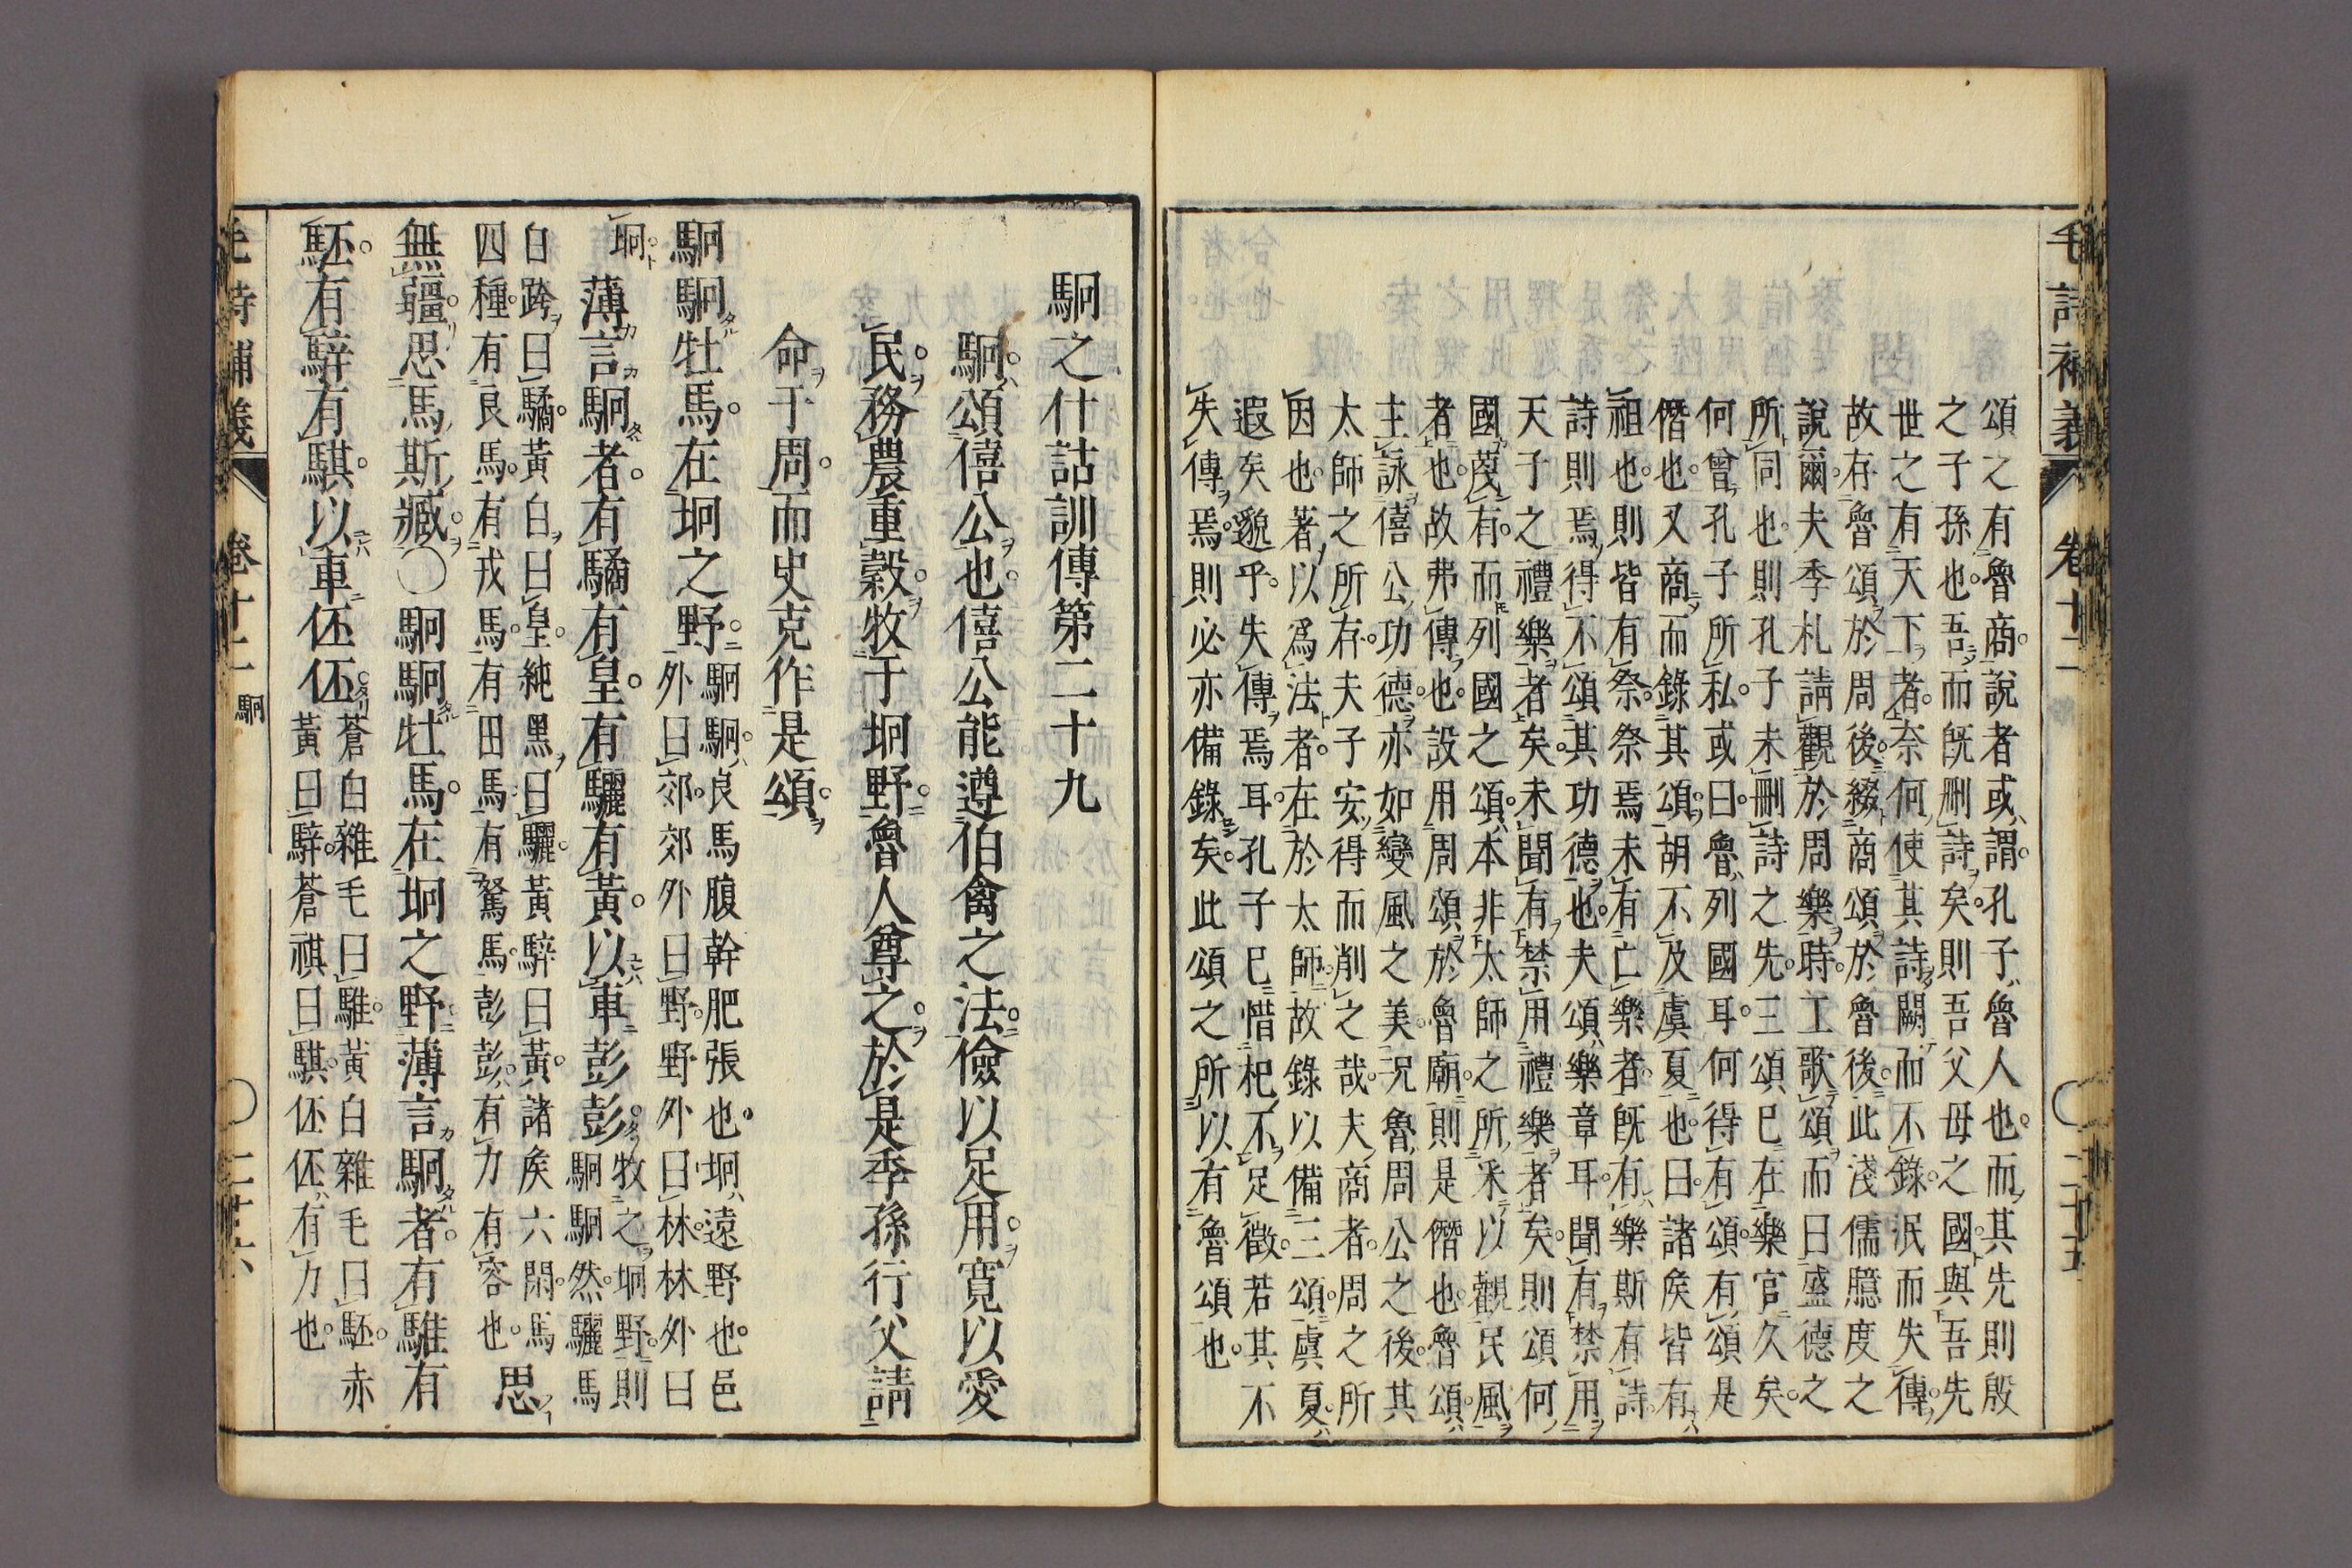 毛詩補義 卷十二 〇二十五
頌之有魯商說者或謂孔子魯人也而其先則殷
之子孫也吾而既刪詩矣則吾父母之國與吾先
世之有天下者奈何使其詩闕而不錄泯而失傳
故存魯頌於周後綴商頌於魯後此淺儒臆度之
說爾夫季札請觀於周樂時工歌頌而曰盛德之
所同也則孔子未刪詩之先三頌已在樂官久矣
何曾孔子所私或曰魯列國耳何得有頌有頌是
僭也又商而錄其頌胡不及虞夏也曰諸矦皆有
祖也則皆有祭祭焉未有亡樂者既有樂斯有詩
詩則焉得不頌其功德也夫頌樂章耳聞有禁用
天子之禮樂者矣未聞有禁用禮樂者矣則頌何
國蔑有而列國之頌本非太師之所采以觀民風
者也故弗傳也設用周頌於魯廟則是僭也魯頌
主詠僖公功德亦如變風之美况魯周公之後其
太師之所存夫子安得而削之哉夫商者周之所
因也著以爲法者在於太師故錄以備三頌虞夏
遐矣邈乎失傳焉耳孔子已惜杞不足徵若其不
失傳焉則必亦備錄矣此頌之所以有魯頌也
駉之什詁訓傳第二十九
駉頌僖公也僖公能遵伯禽之法儉以足用寬以愛
民務農重穀牧于坰野魯人尊之於是季孫行父請
命于周而史克作是頌
駉駉牡馬在坰之野
駉駉良馬腹幹肥張也坰遠野也邑
外曰郊郊外曰野野外曰林林外曰
坰
薄言駉者有驈有皇有驪有黃以車彭彭
牧之坰野則
駉駉然驪馬
白跨曰驈黃白曰皇純黑曰驪黃騂曰黃諸矦六閑馬
四種有良馬有戎馬有田馬有駑馬彭彭有力有容也
思
無疆思馬斯臧〇駉駉牡馬在坰之野薄言駉者有騅有
駓有騂有騏以車伾伾
蒼白雜毛曰騅黃白雜毛曰駓赤
黃曰騂蒼祺曰騏伾伾有力也
毛詩補義 卷十二 駉 〇二十六